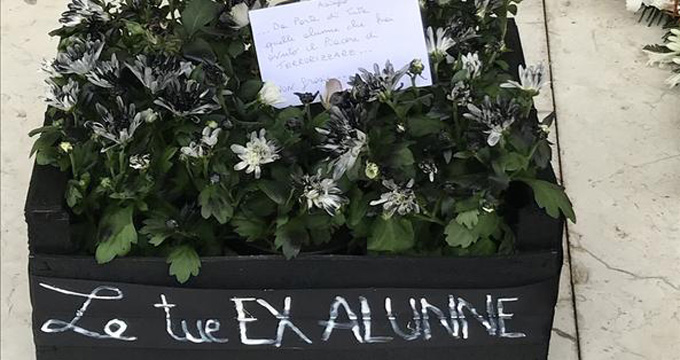 Da Parte di tutte
quelle alunne che hai
avuto il Piacere di
TERRORIZZARE...
NON
Le tue EX ALUNNE